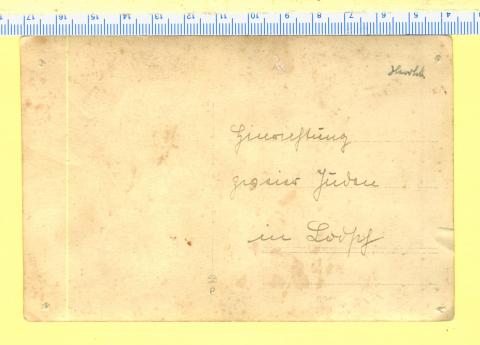 17 16 15 14 13 12 11 10 9 8 7 6 5 4
Hinrichtung
zweier Juden
in Lodsch
P